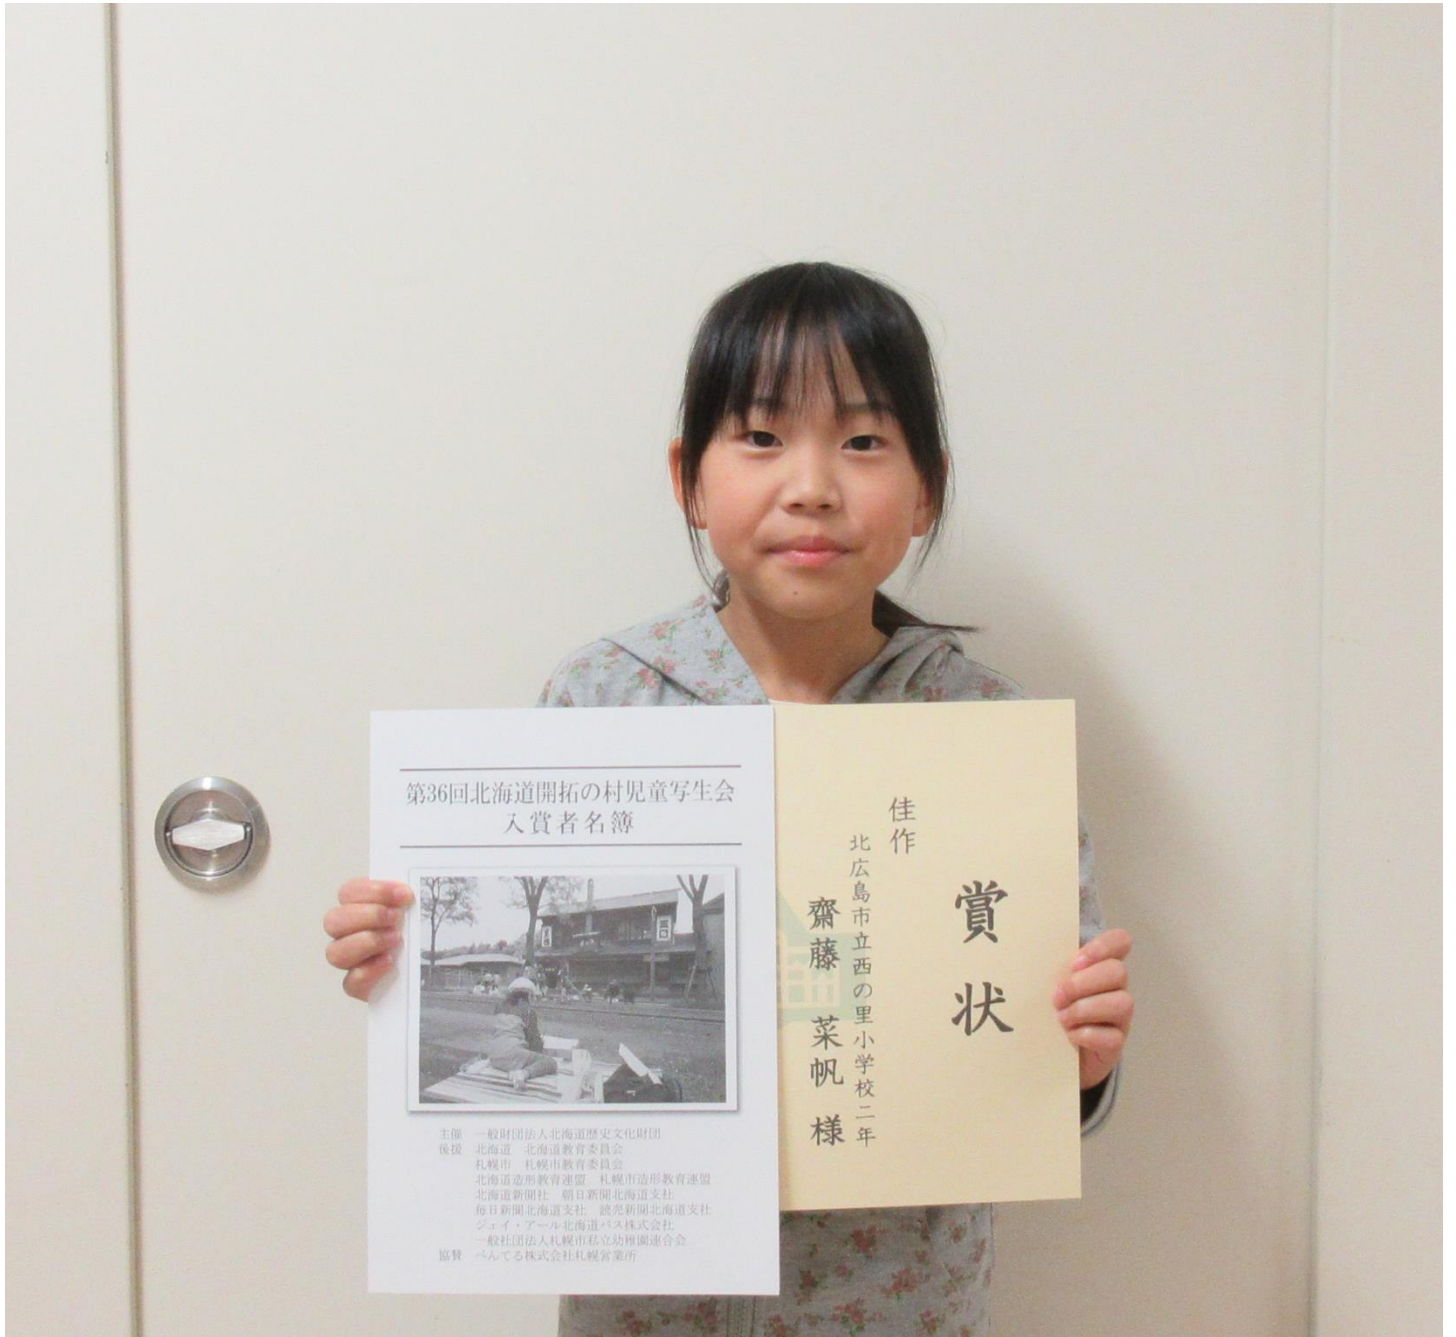 第36回北海道開拓の村児童写生会
入賞者名簿
主催 一般財団法人北海道歴史文化財団
後援 北海道 北海道教育委員会
札幌市 札幌市教育委員会
北海道造形教育連盟 札幌市造形教育連盟
北海道新聞社 朝日新聞北海道支社
毎日新聞北海道支社 読売新聞北海道支社
ジェイ・アール北海道バス株式会社
一般社団法人札幌市私立幼稚園連合会
協賛 ぺんてる株式会社札幌営業所
賞状
佳作
北広島市立西の里小学校二年
齋藤 菜帆 様